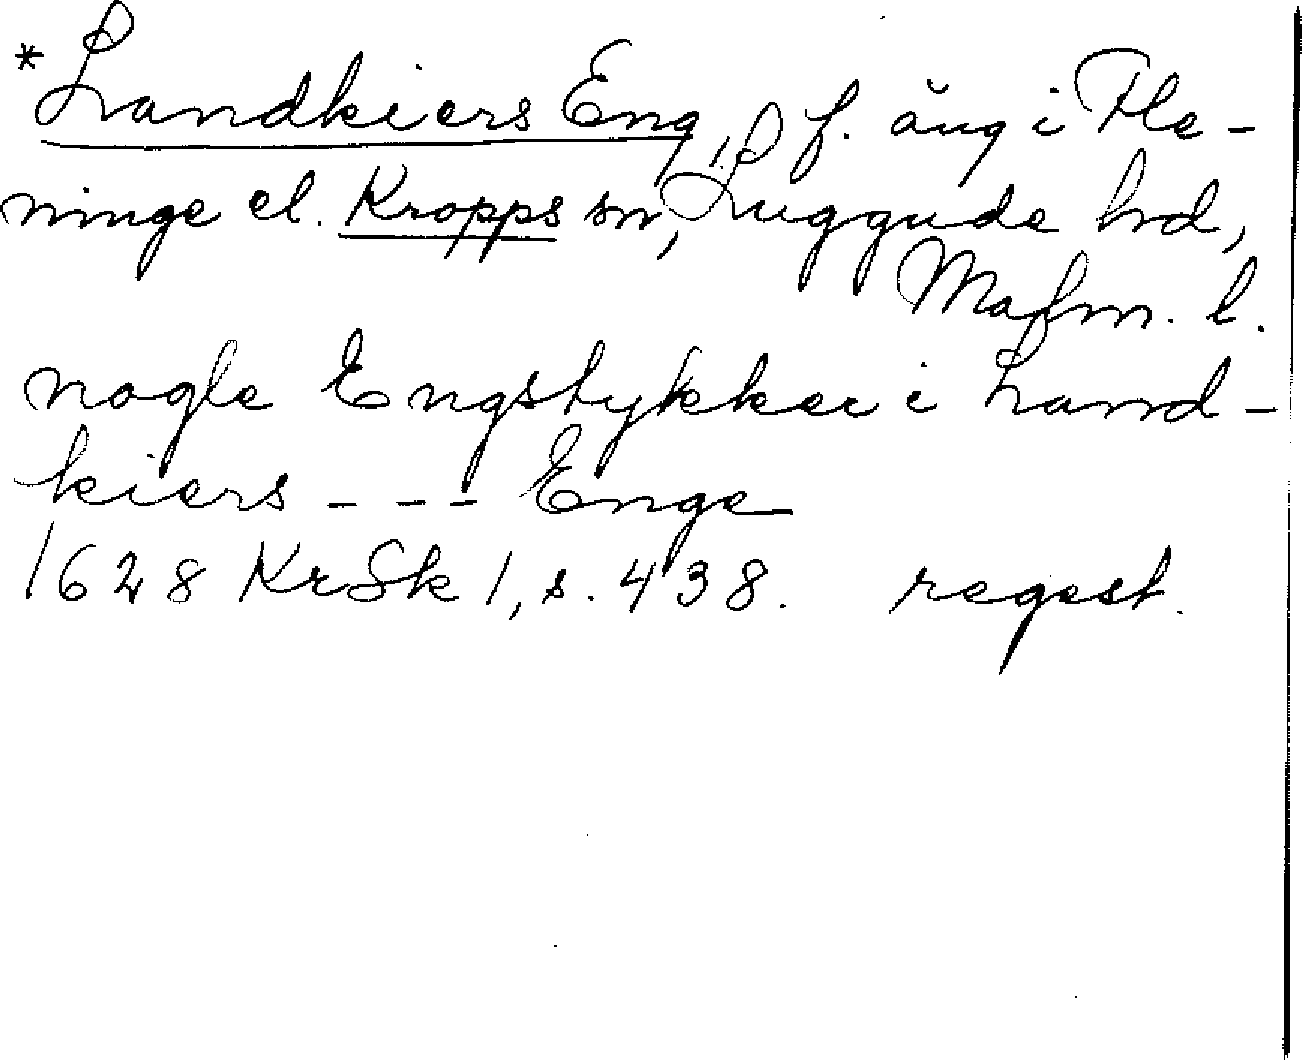 *Landkiers Eng, f. äng i Fle-
ninge el. Kropps sn, Luggude hd,
Malm. l.
nogle Engstykker i Land-
kiers - - - Enge
1628 KrSk 1, s. 438. regest.